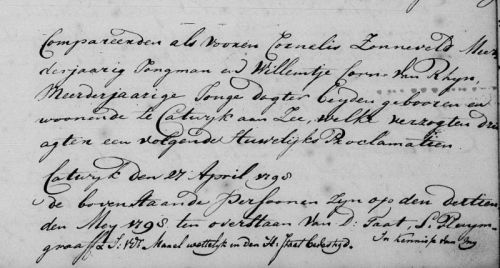 Compareerden als vooren Cornelis Zonneveld Meer
derjaarig Jongman en Willemtje Corn: van Rhyn,
Meerderjaarige Jonge Dogter beyden gebooren en
woonende te Catwyk aan Zee, welke verzogten drie
agter een volgende Huwelijks Proclamatien.
Catwyk den 27 April 1795
de bovenstaande Persoonen zyn op den dertien
den Mey 1795 ten overstaan van D: Taat, S: Pluym
graaff & J: Mansel wettelyk in den H: staat bevestigd. In kennisse van my